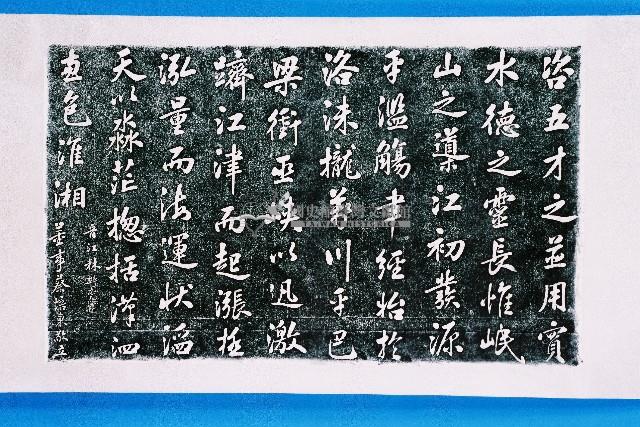 咨五才之並用實
水德之靈長惟岷
山之導江初發源
乎濫觴聿經始於
洛沬攏萬川乎巴
梁衝巫峽以迅激
躋江津而起漲極
泓量而海運狀滔
天以淼茫揔括漢泗
兼包淮湘
晉江林
董事蔡